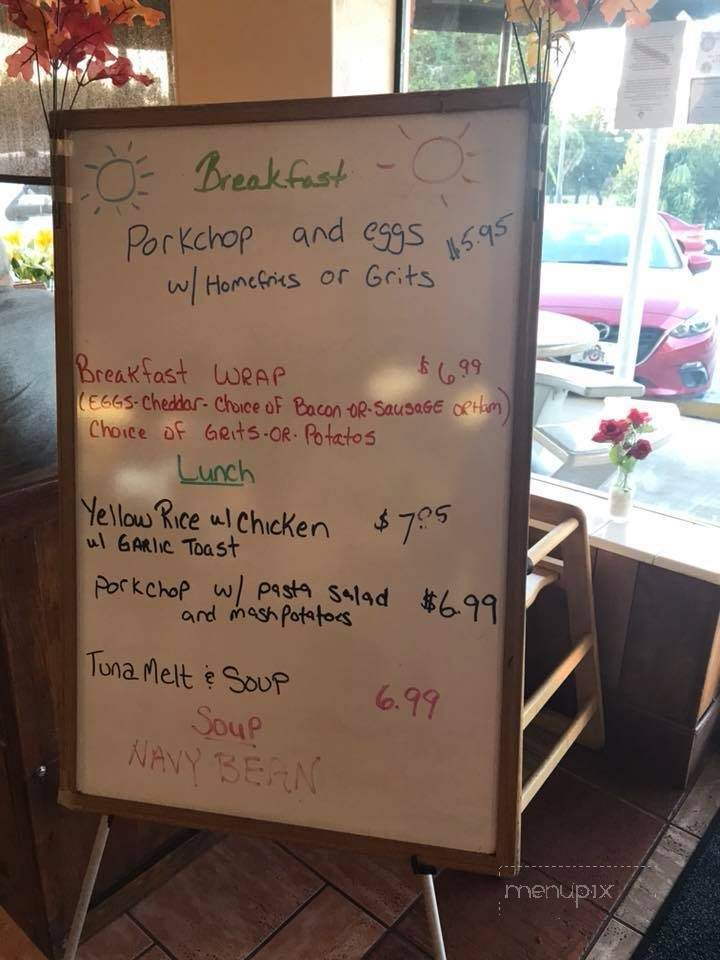 Breakfast
Porkchop and eggs $5.95
w/ Homefries or Grits
Breakfast WRAP $6.99
(EGGS-Cheddar-Choice of Bacon-OR-SAUSAGE OR Ham)
Choice of GRITS-OR-Potatos
Lunch
Yellow Rice w/ Chicken
w/ GARLIC Toast
Porkchop w/ pasta salad $6.99
and mashpotatoes
Tuna Melt & Soup 6.99
Soup
NAVY BEAN
menupix